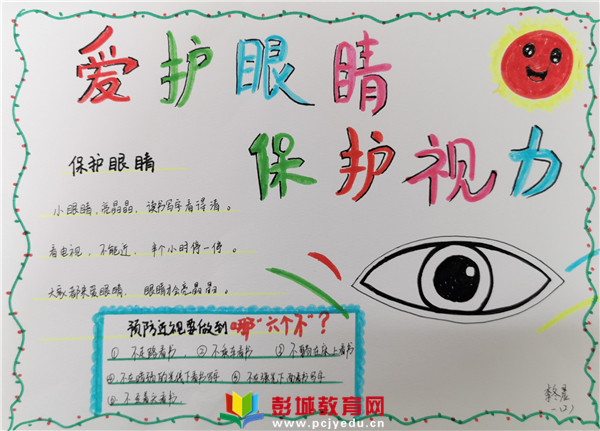 爱护眼睛
保护视力
保护眼睛
小眼睛,亮晶晶,读书写字看得清。
看电视,不能近,半个小时停一停。
大家都来爱眼睛,眼睛才会亮晶晶。
预防近视要做到哪“六个不”?
① 不走路看书 ② 不乘车看书 ③ 不躺在床上看书
④ 不在暗弱的光线下看书写字 ⑤ 不在强光下面看书写字
⑥ 不歪着头看书
李冬晨
一(2)
彭城教育网
www.pcjyedu.cn